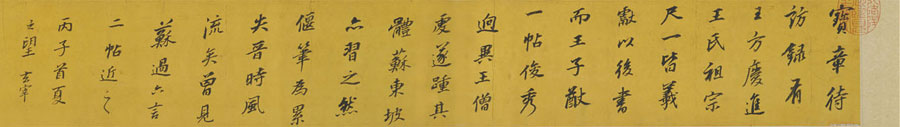 寶章待
訪錄有
王方慶進
王氏祖宗
尺一皆羲
獻以後書
而王子猷
一帖俊秀
迥異王僧
虔遂踵其
體蘇東坡
亦習之然
偃筆為累
失晉時風
流矣曾見
蘇過六言
二帖近之
丙子首夏
之望 玄宰